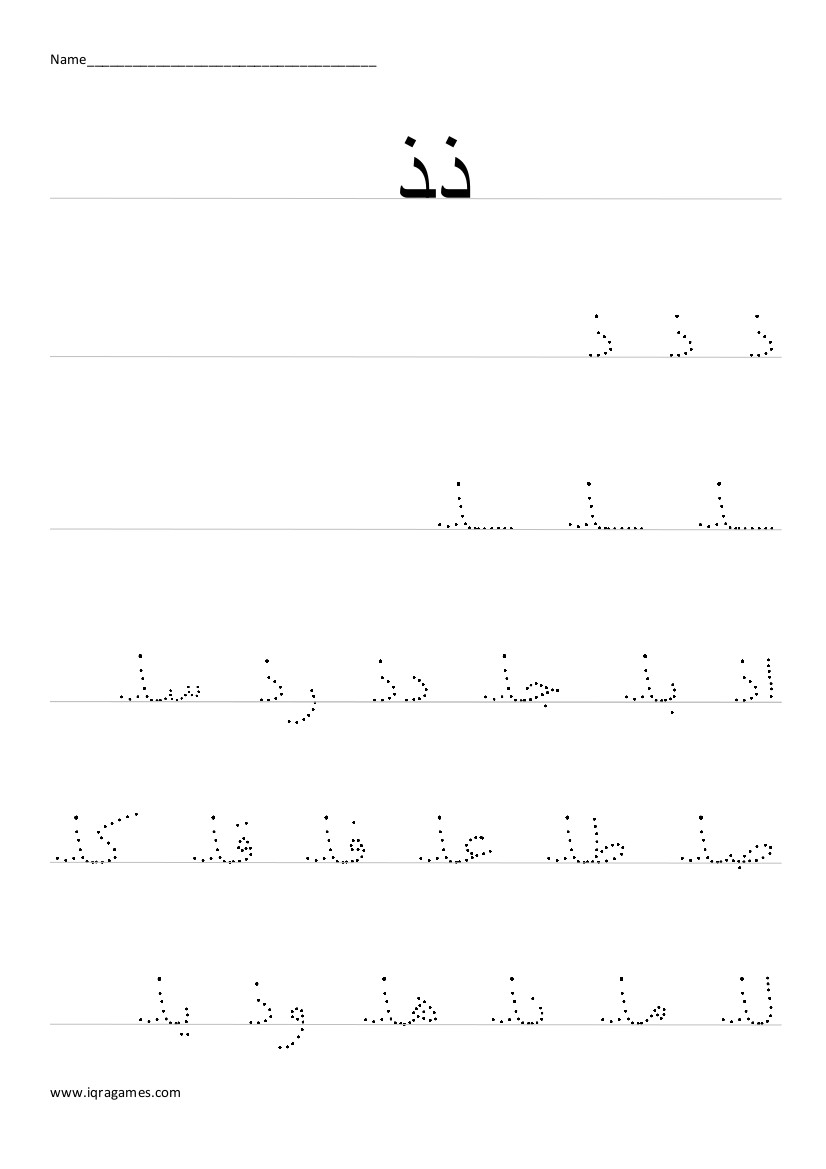 Name______________________________________
ذ ـذ
ذ ذ ذ
ـذ ـذ ـذ
اذ بذ جذ دذ رذ سذ
صذ طذ عذ فذ قذ كذ
لذ مذ نذ هذ وذ يذ
www.iqragames.com